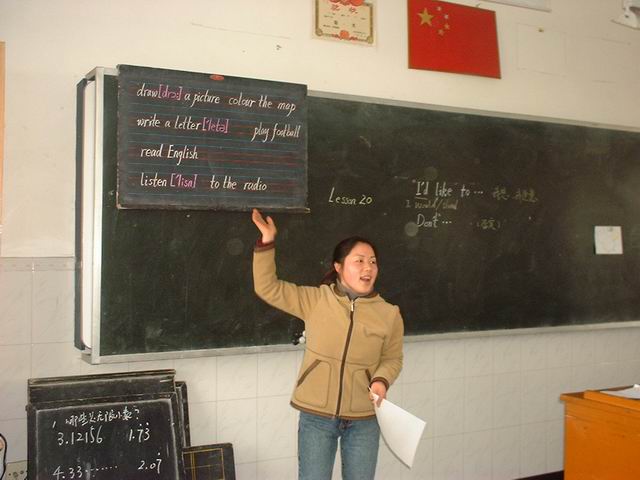 draw[drɔ:] a picture colour the map
write a letter['letə] play football
read English
listen['lisn] to the radio
Lesson 20
"I'd like to ...
I would/should
Don't ...
1、哪些是无限小数?
3.12156 1.73
4.33...... 2.07